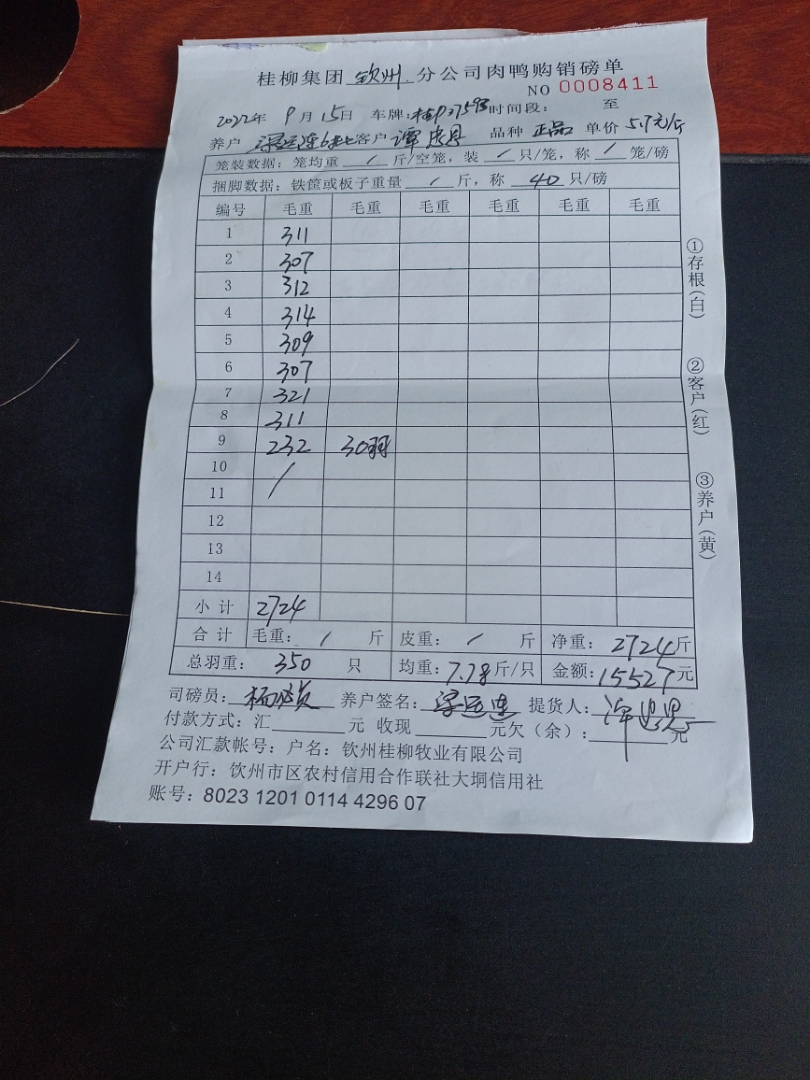 桂柳集团 钦州 分公司肉鸭购销磅单
NO 0008411
2022年 9月15日 车牌: 时间段: 至
养户 客户 谭 品种 正品 单价 5.7元/斤
笼装数据: 笼均重 / 斤/空笼, 装 / 只/笼, 称 / 笼/磅
捆脚数据: 铁筐或板子重量 / 斤, 称 40 只/磅
编号 毛重 毛重 毛重 毛重 毛重 毛重
1 311
2 307
3 312
4 314
5 309
6 307
7 321
8 311
9 232 30羽
10 /
11
12
13
14
小计 2724
合计 毛重: / 斤 皮重: / 斤 净重: 2724斤
总羽重: 350 只 均重: 7.78斤/只 金额: 15527元
司磅员: 养户签名: 梁运连 提货人: 谭
付款方式: 汇 元 收现 元欠(余): 元
公司汇款帐号: 户名: 钦州桂柳牧业有限公司
开户行: 饮州市区农村信用合作联社大垌信用社
账号: 8023 1201 0114 4296 07
①存根(白)
②客户(红)
③养户(黄)